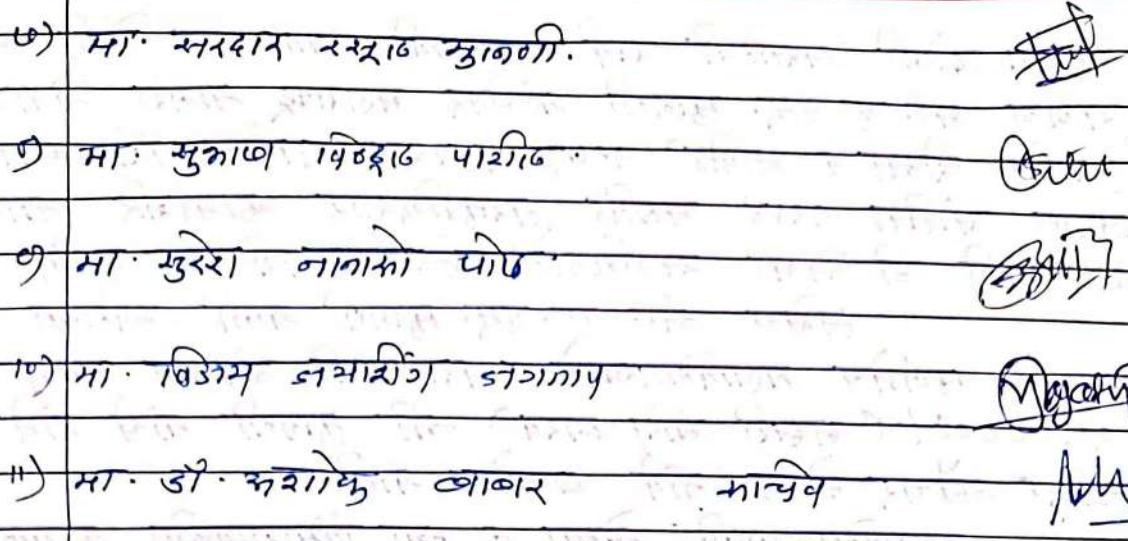 ७) मा. सरदार रसूल मुलाणी.
८) मा. सुभाष विठ्ठल पाटील.
९) मा. सुरेश नानासो पोळ.
१०) मा. विजय जयसिंग जगताप
११) मा. डॉ. अशोक बाबर सचिव